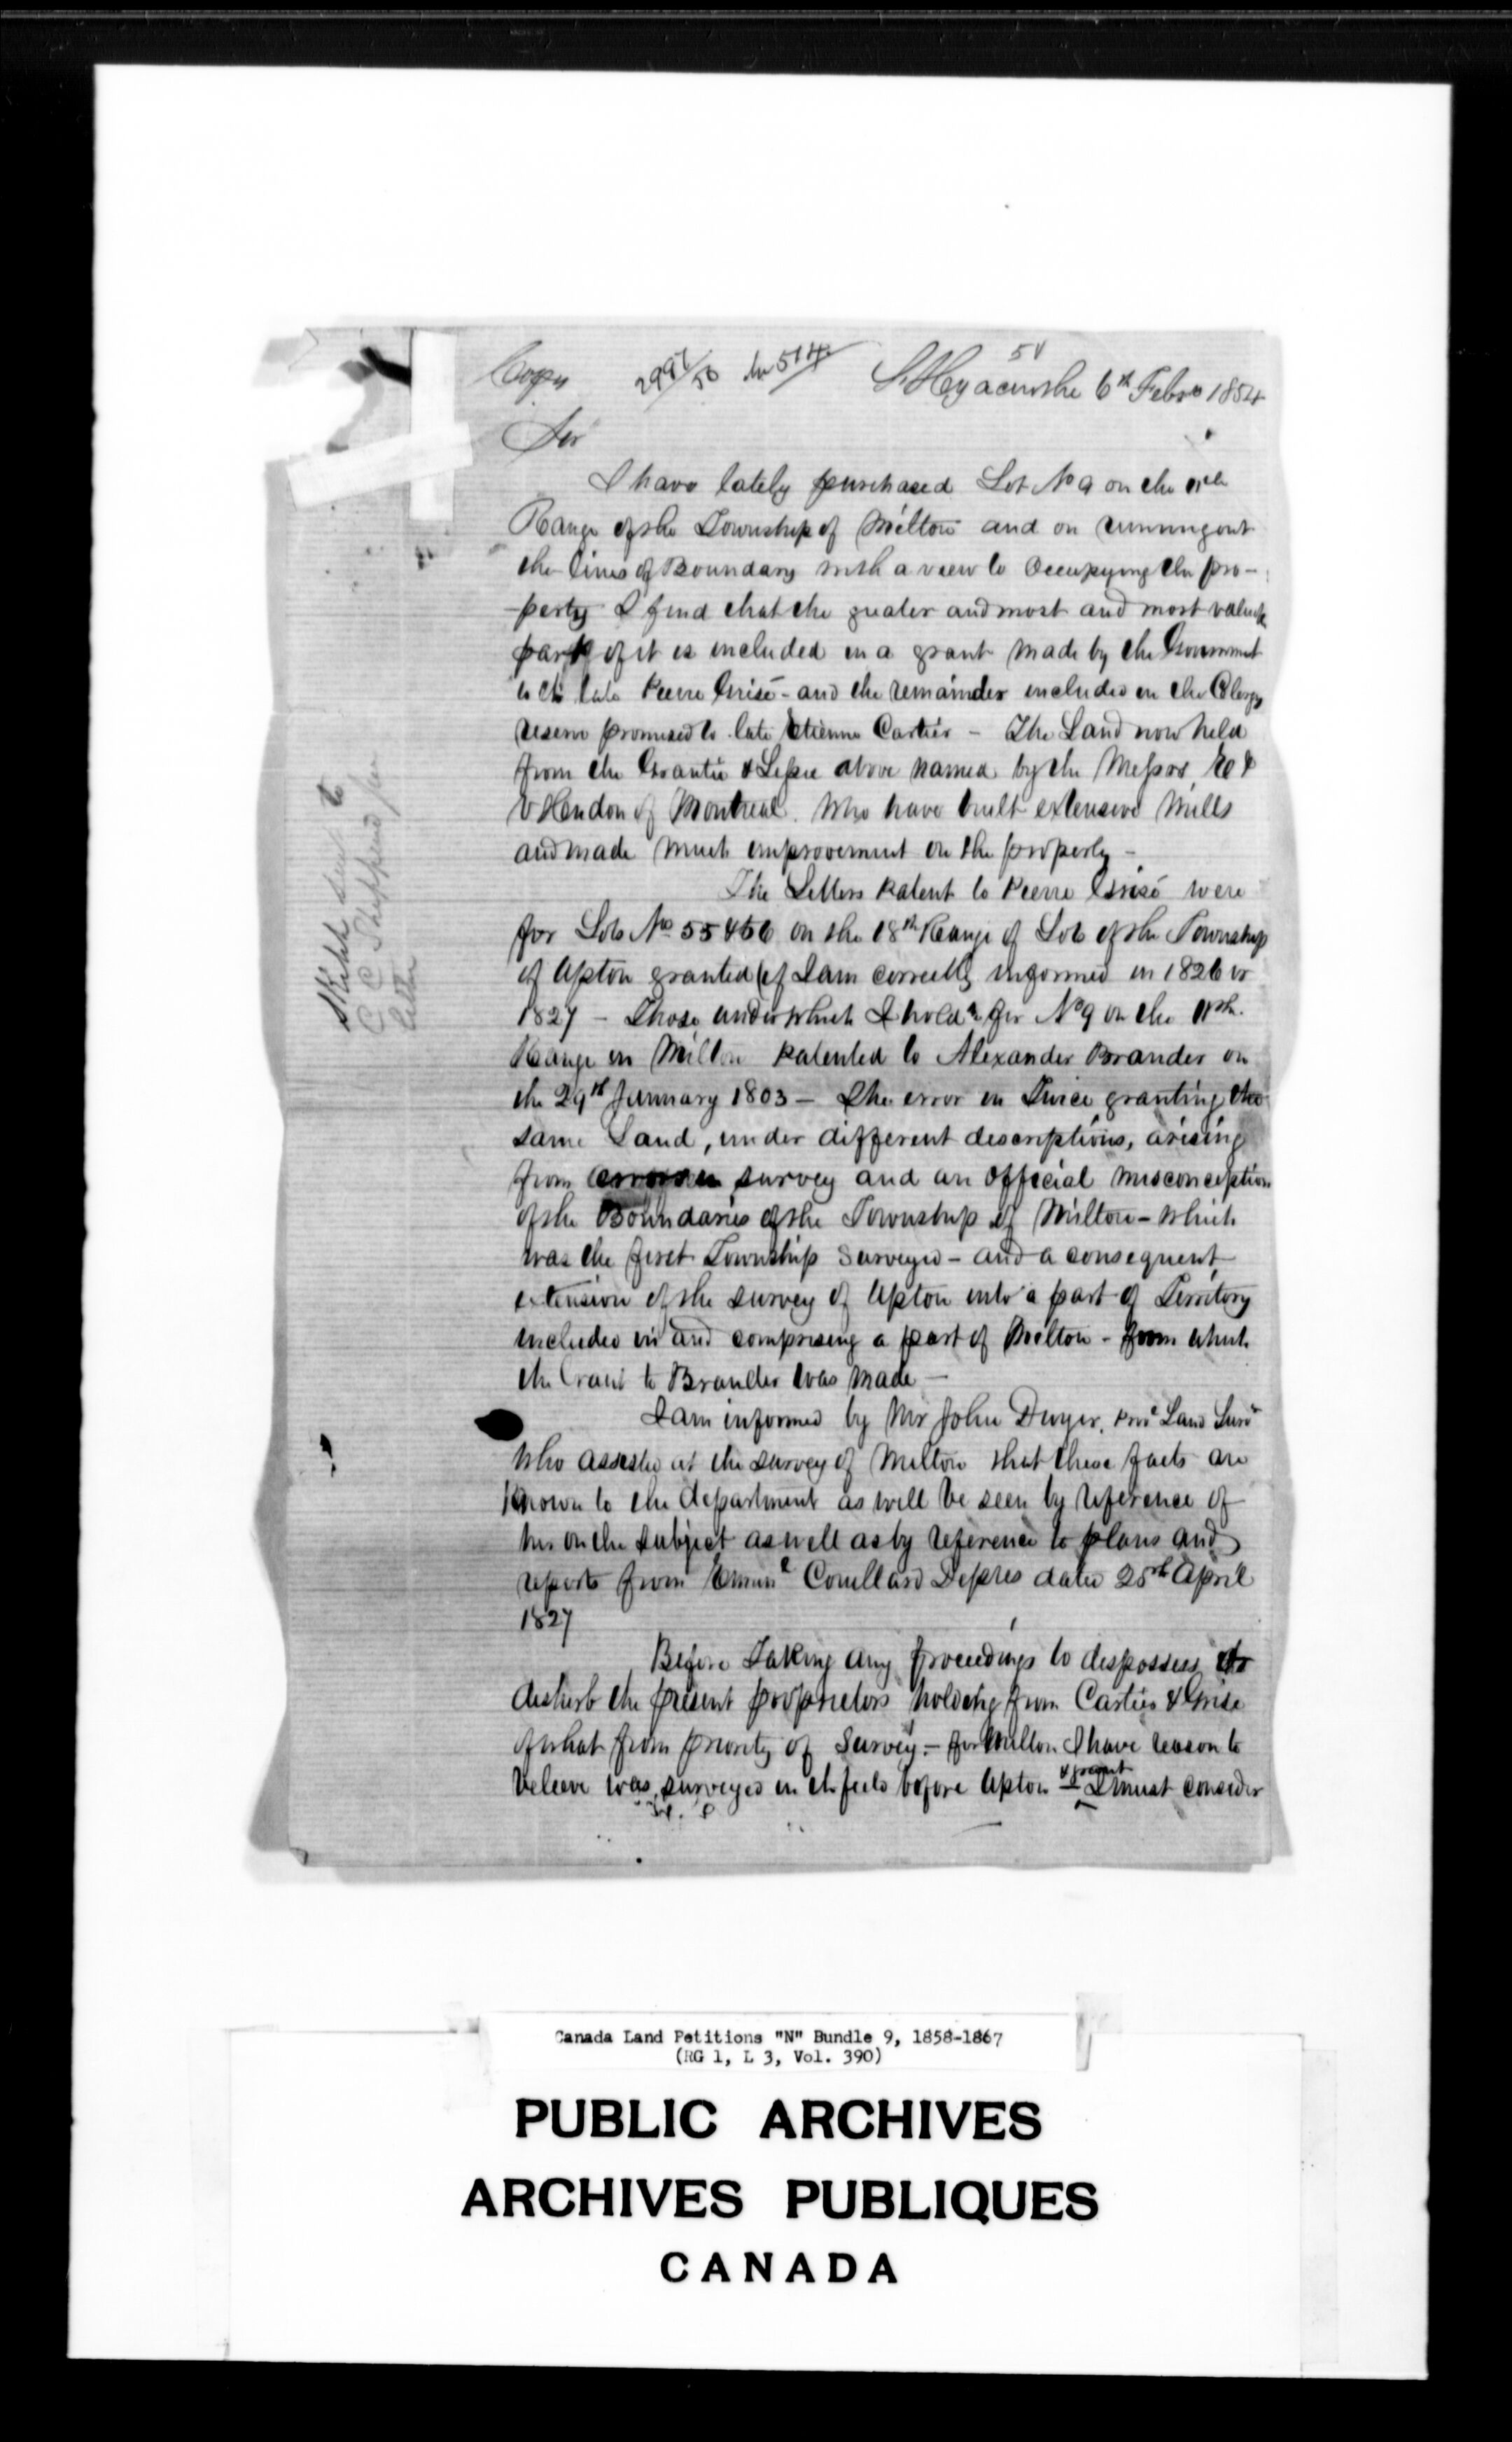 Copy
54
St Hyacinthe 6th Feby 1854
Sir
I have lately purchased Lot No 9 on the 11th
Range of the Township of Milton and on running out
the lines of Boundary with a view to Occupying the pro-
-perty I find that the greater and most and most valuable
part of it is included in a grant made by the Government
to the late Pierre Grisé - and the remainder included in the Clergy
reserve promised to late Etienne Cartier - The Land now held
from the Grantee & Lessee above named by the Messrs
of Montreal. Who have built extensive Mills
and made much improvement on the property -
The Letters Patent to Pierre Grisé were
for Lots No 55 & 56 on the 18th Range of Lots of the Township
of Upton granted (if I am correctly informed in 1826 or
1827 - Those under which I hold for No 9 on the 11th
Range in Milton Patented to Alexander Brander on
the 29th January 1803 - The error in Twice granting the
same Land, under different descriptions, arising
from survey and an official misconception
of the Boundaries of the Township of Milton - which
was the first Township Surveyed - and a consequent
extension of the survey of Upton into a part of Territory
included in and comprising a part of Milton - from which
the Grant to Brander was made -
I am informed by Mr John Dwyer, Prov Land Survr
who assisted at the survey of Milton that these facts are
Known to the department as will be seen by reference of
his on the subject as well as by reference to plans and
reports from Couillard Depres dated 25th April
1827
Before Taking any proceedings to dispossess or
disturb the present proprietors holding from Cartier & Grise
of what from priority of Survey - for Milton I have reason to
beleive was surveyed in the field before Upton
& grant
I must consider
Sketch sent to
C C Sheppard per
letter
Canada Land Petitions "N" Bundle 9, 1858-1867
(RG 1, L 3, Vol. 390)
PUBLIC ARCHIVES
ARCHIVES PUBLIQUES
CANADA